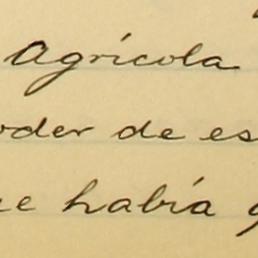 Agrícola
oder de es
ue había q